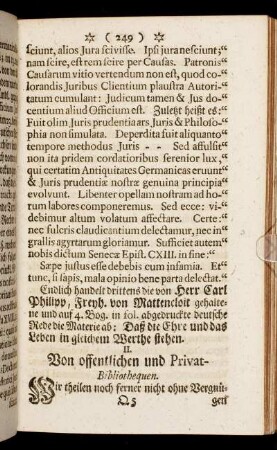 ☼ ( 249 ) ☼
sciunt, alios Jura scivisse. Ipsi jura nesciunt;“
nam scire, est rem scire per Causas. Patronis“
Causarum vitio vertendum non est, quod co-“
lorandis Juribus Clientium plaustra Autori-“
tatum cumulant: Judicum tamen & Jus do-“
centium aliud Officium est. Zuletzt heißt es:“
Fuit olim Juris prudentia ars Juris & Philoso-“
phia non simulata. Deperdita fuit aliquanto“
tempore methodus Juris - - Sed affulsit“
non ita pridem cordatioribus serenior lux,“
qui certatim Antiquitates Germanicas eruunt“
& Juris prudentiæ nostræ genuina principia“
evolvunt. Libenter opellam nostram ad ho-“
rum labores componeremus. Sed ecce: vi-“
debimur altum volatum affectare. Certe:“
nec fulcris claudicantium delectamur, nec in“
grallis agyrtarum gloriamur. Sufficiet autem“
nobis dictum Senecæ Epist. CXIII. in fine:“
Sæpe justus esse debebis cum infamia. Et“
tunc, si sapis, mala opinio bene parta delectat.“
Endlich handelt drittens die von Herr Carl
Philipp, Freyh. von Mattencloit gehalte-
ne und auf 4. Bog. in fol. abgedruckte deutsche
Rede die Materie ab: Daß die Ehre und das
Leben in gleichem Werthe stehen.
II.
Von offentlichen und Privat-
Bibliothequen.
Wir theilen noch ferner nicht ohne Vergnü-
Q 5 gen